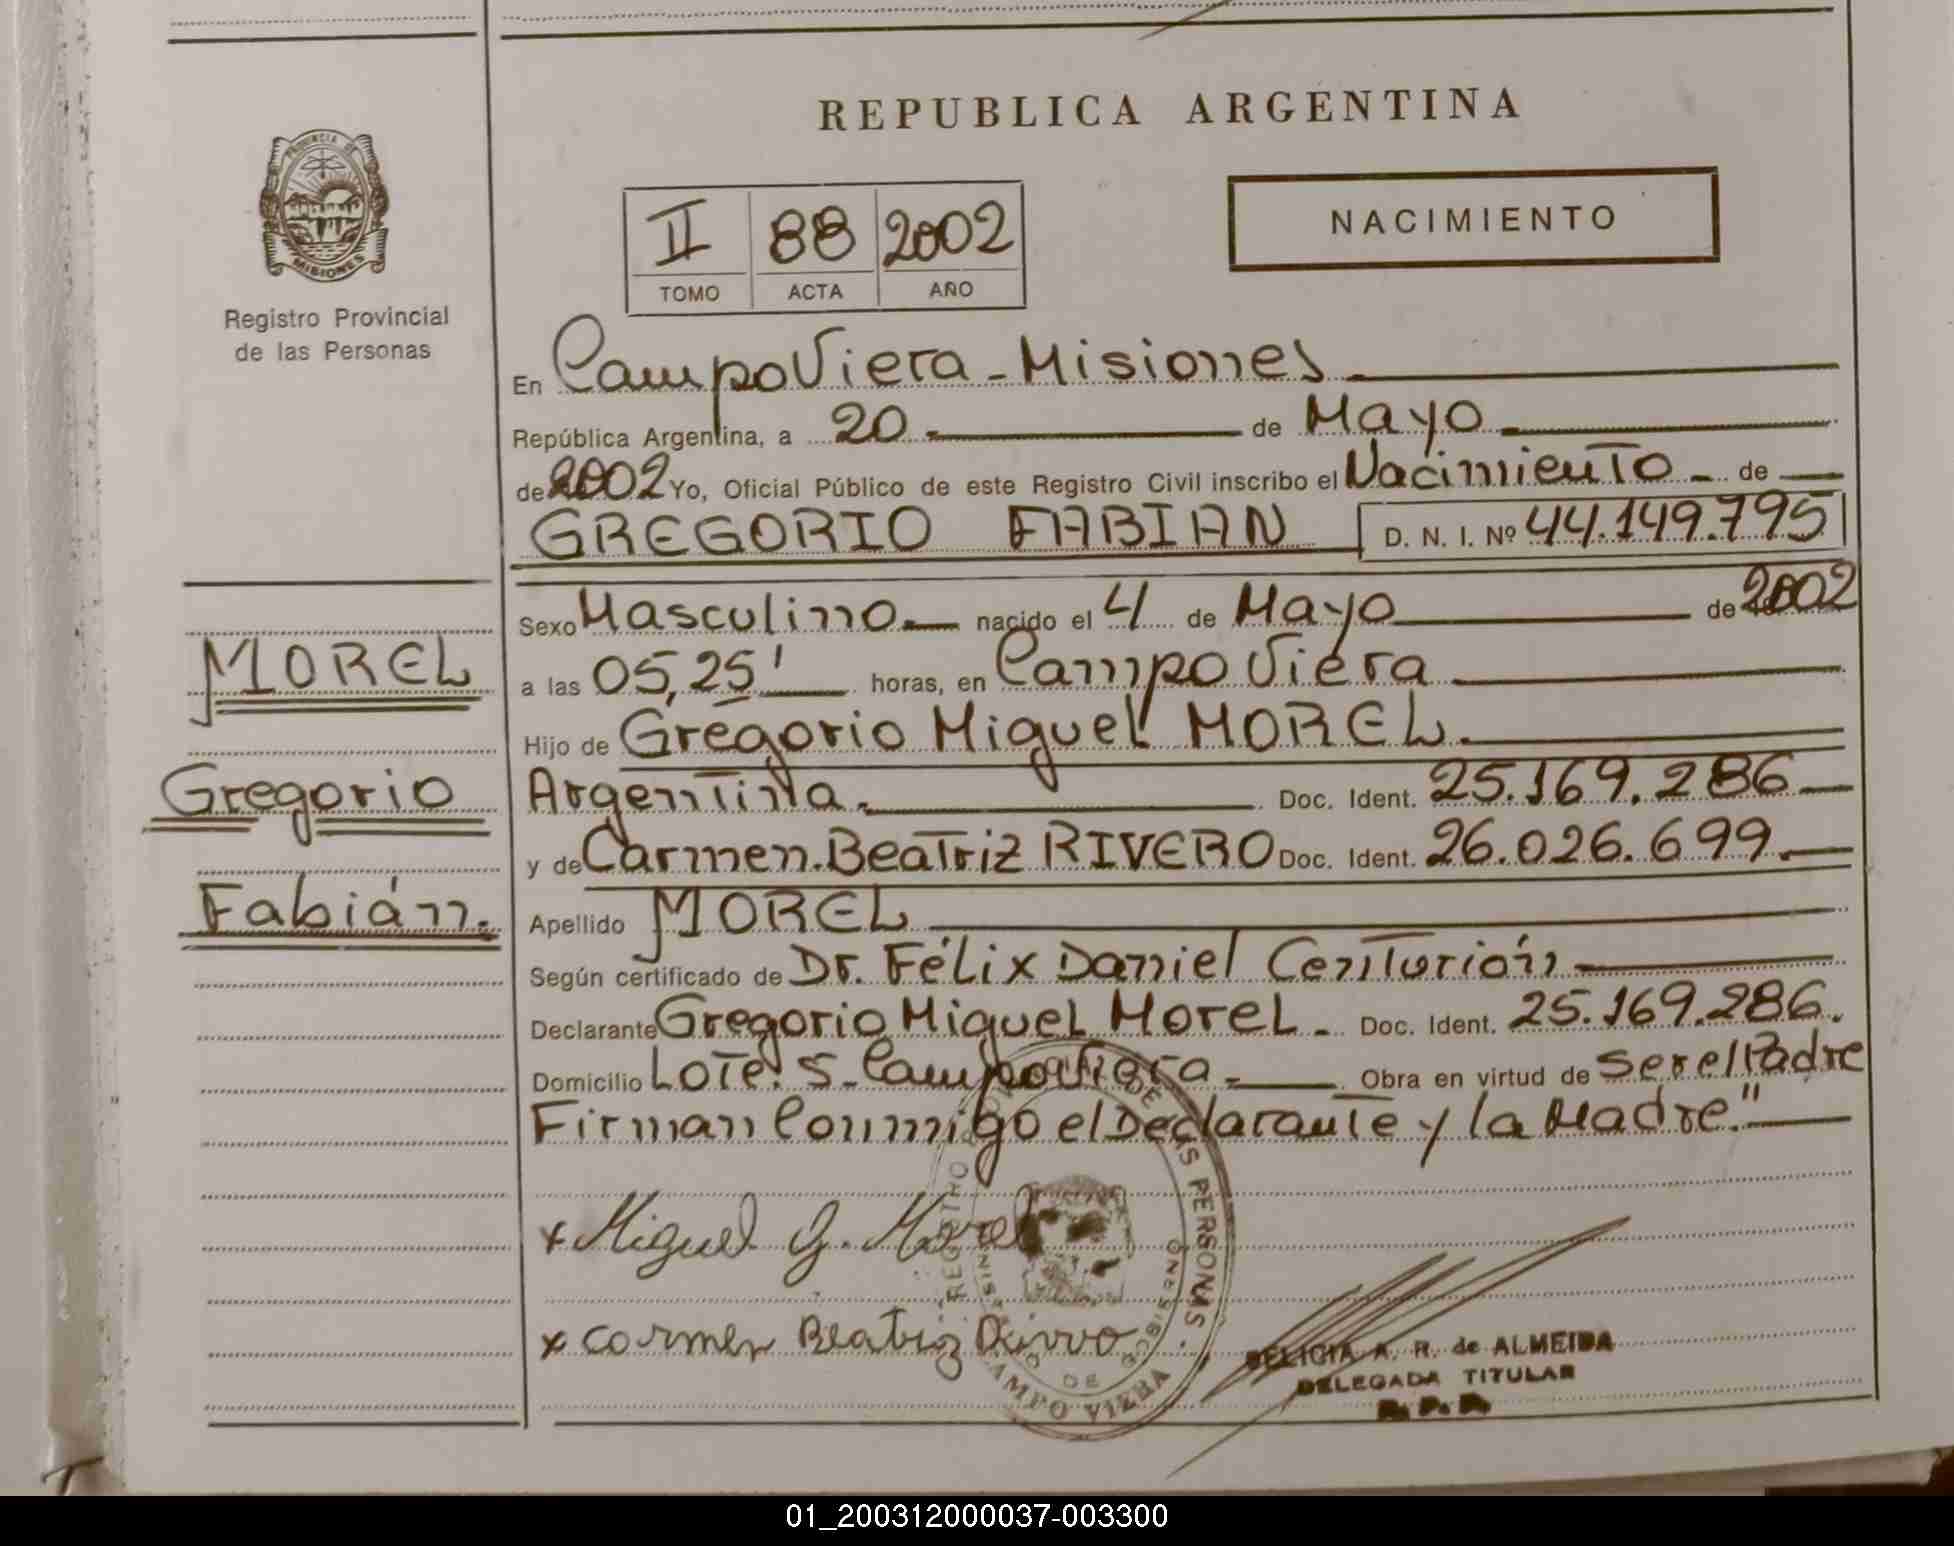 REPUBLICA ARGENTINA
PROVINCIA DE
MISIONES
Registro Provincial
de las Personas
II 88 2002
TOMO ACTA AÑO
NACIMIENTO
En Campo Viera - Misiones
República Argentina, a 20 de Mayo
de 2002 Yo, Oficial Público de este Registro Civil inscribo el Nacimiento de
GREGORIO FABIAN D. N. I. Nº 44.149.795
Sexo Masculino nacido el 4 de Mayo de 2002
MOREL
a las 05,25' horas, en Campo Viera
Hijo de Gregorio Miguel MOREL.
Gregorio
Argentina. Doc. Ident. 25.169.286
y de Carmen Beatriz RIVERO Doc. Ident. 26.026.699
Fabián.
Apellido MOREL
Según certificado de Dr. Félix Daniel Centurión
Declarante Gregorio Miguel Morel. Doc. Ident. 25.169.286.
Domicilio Lote. 5. Campo Viera Obra en virtud de ser el Padre
Firman Conmigo el Declarante y la Madre."
x Miguel G. Morel
x Carmen Beatriz
REGISTRO DE LAS PERSONAS
GOBIERNO DE
CAMPO VIERA
DELICIA A. R. de ALMEIDA
DELEGADA TITULAR
R. P. P.
01_200312000037-003300